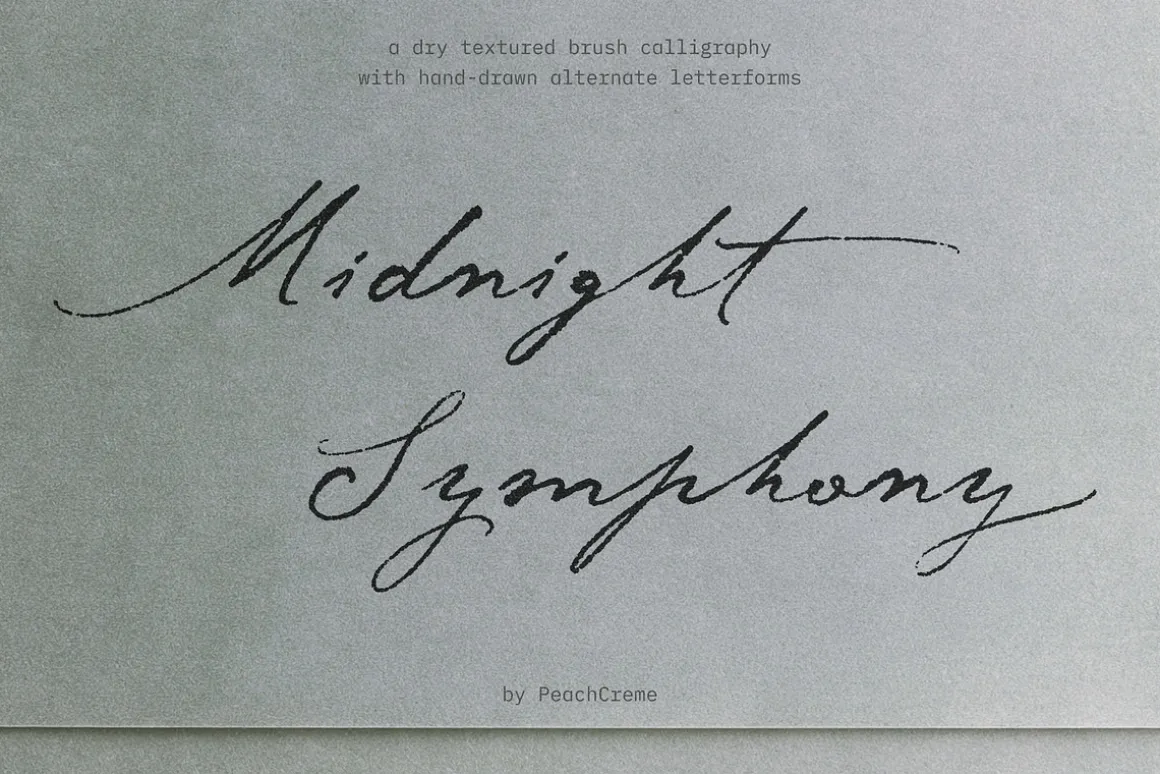 a dry textured brush calligraphy
with hand-drawn alternate letterforms
Midnight
Symphony
by PeachCreme